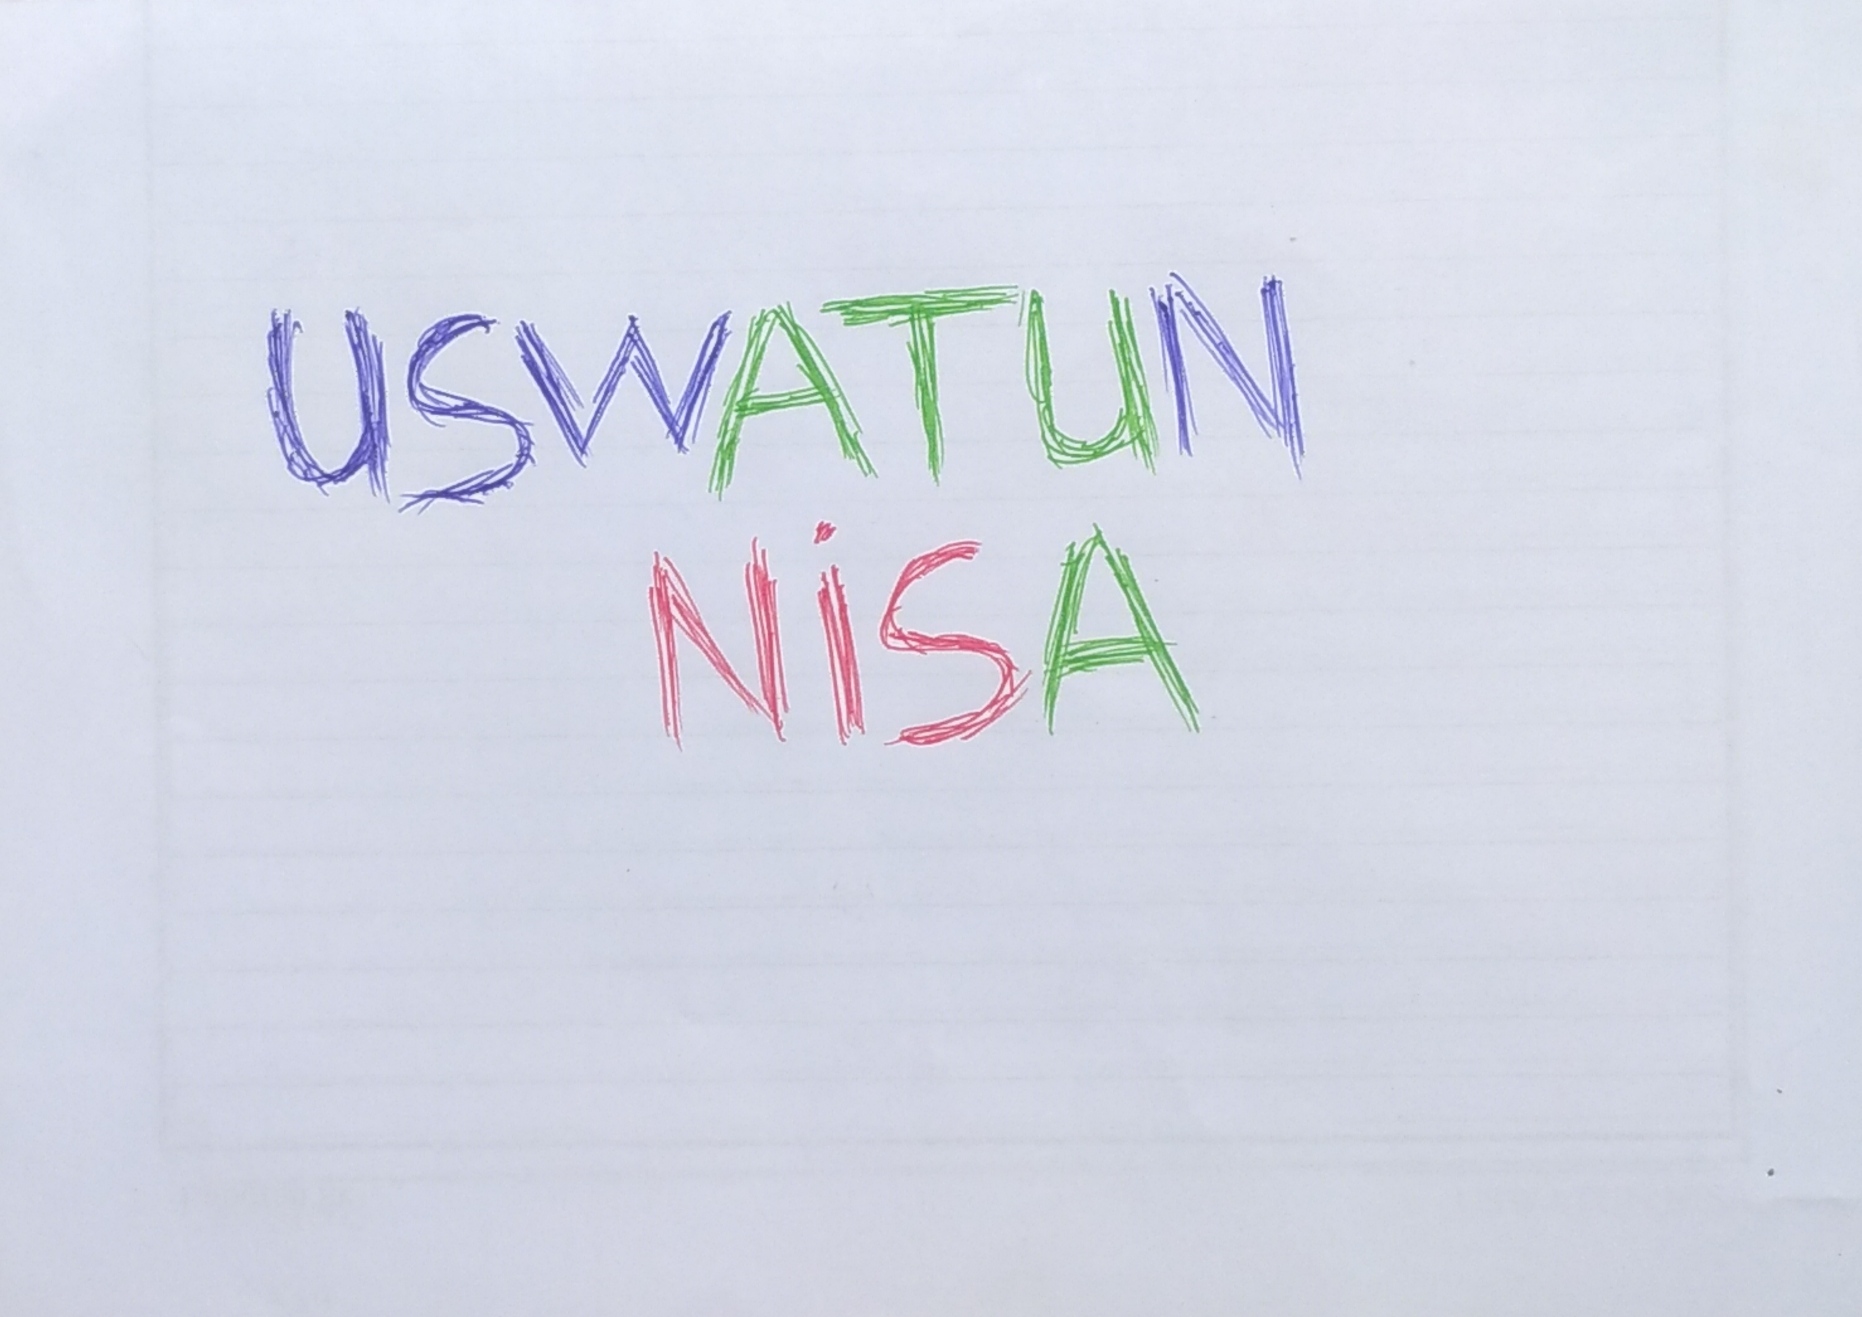 USWATUN
NiSA